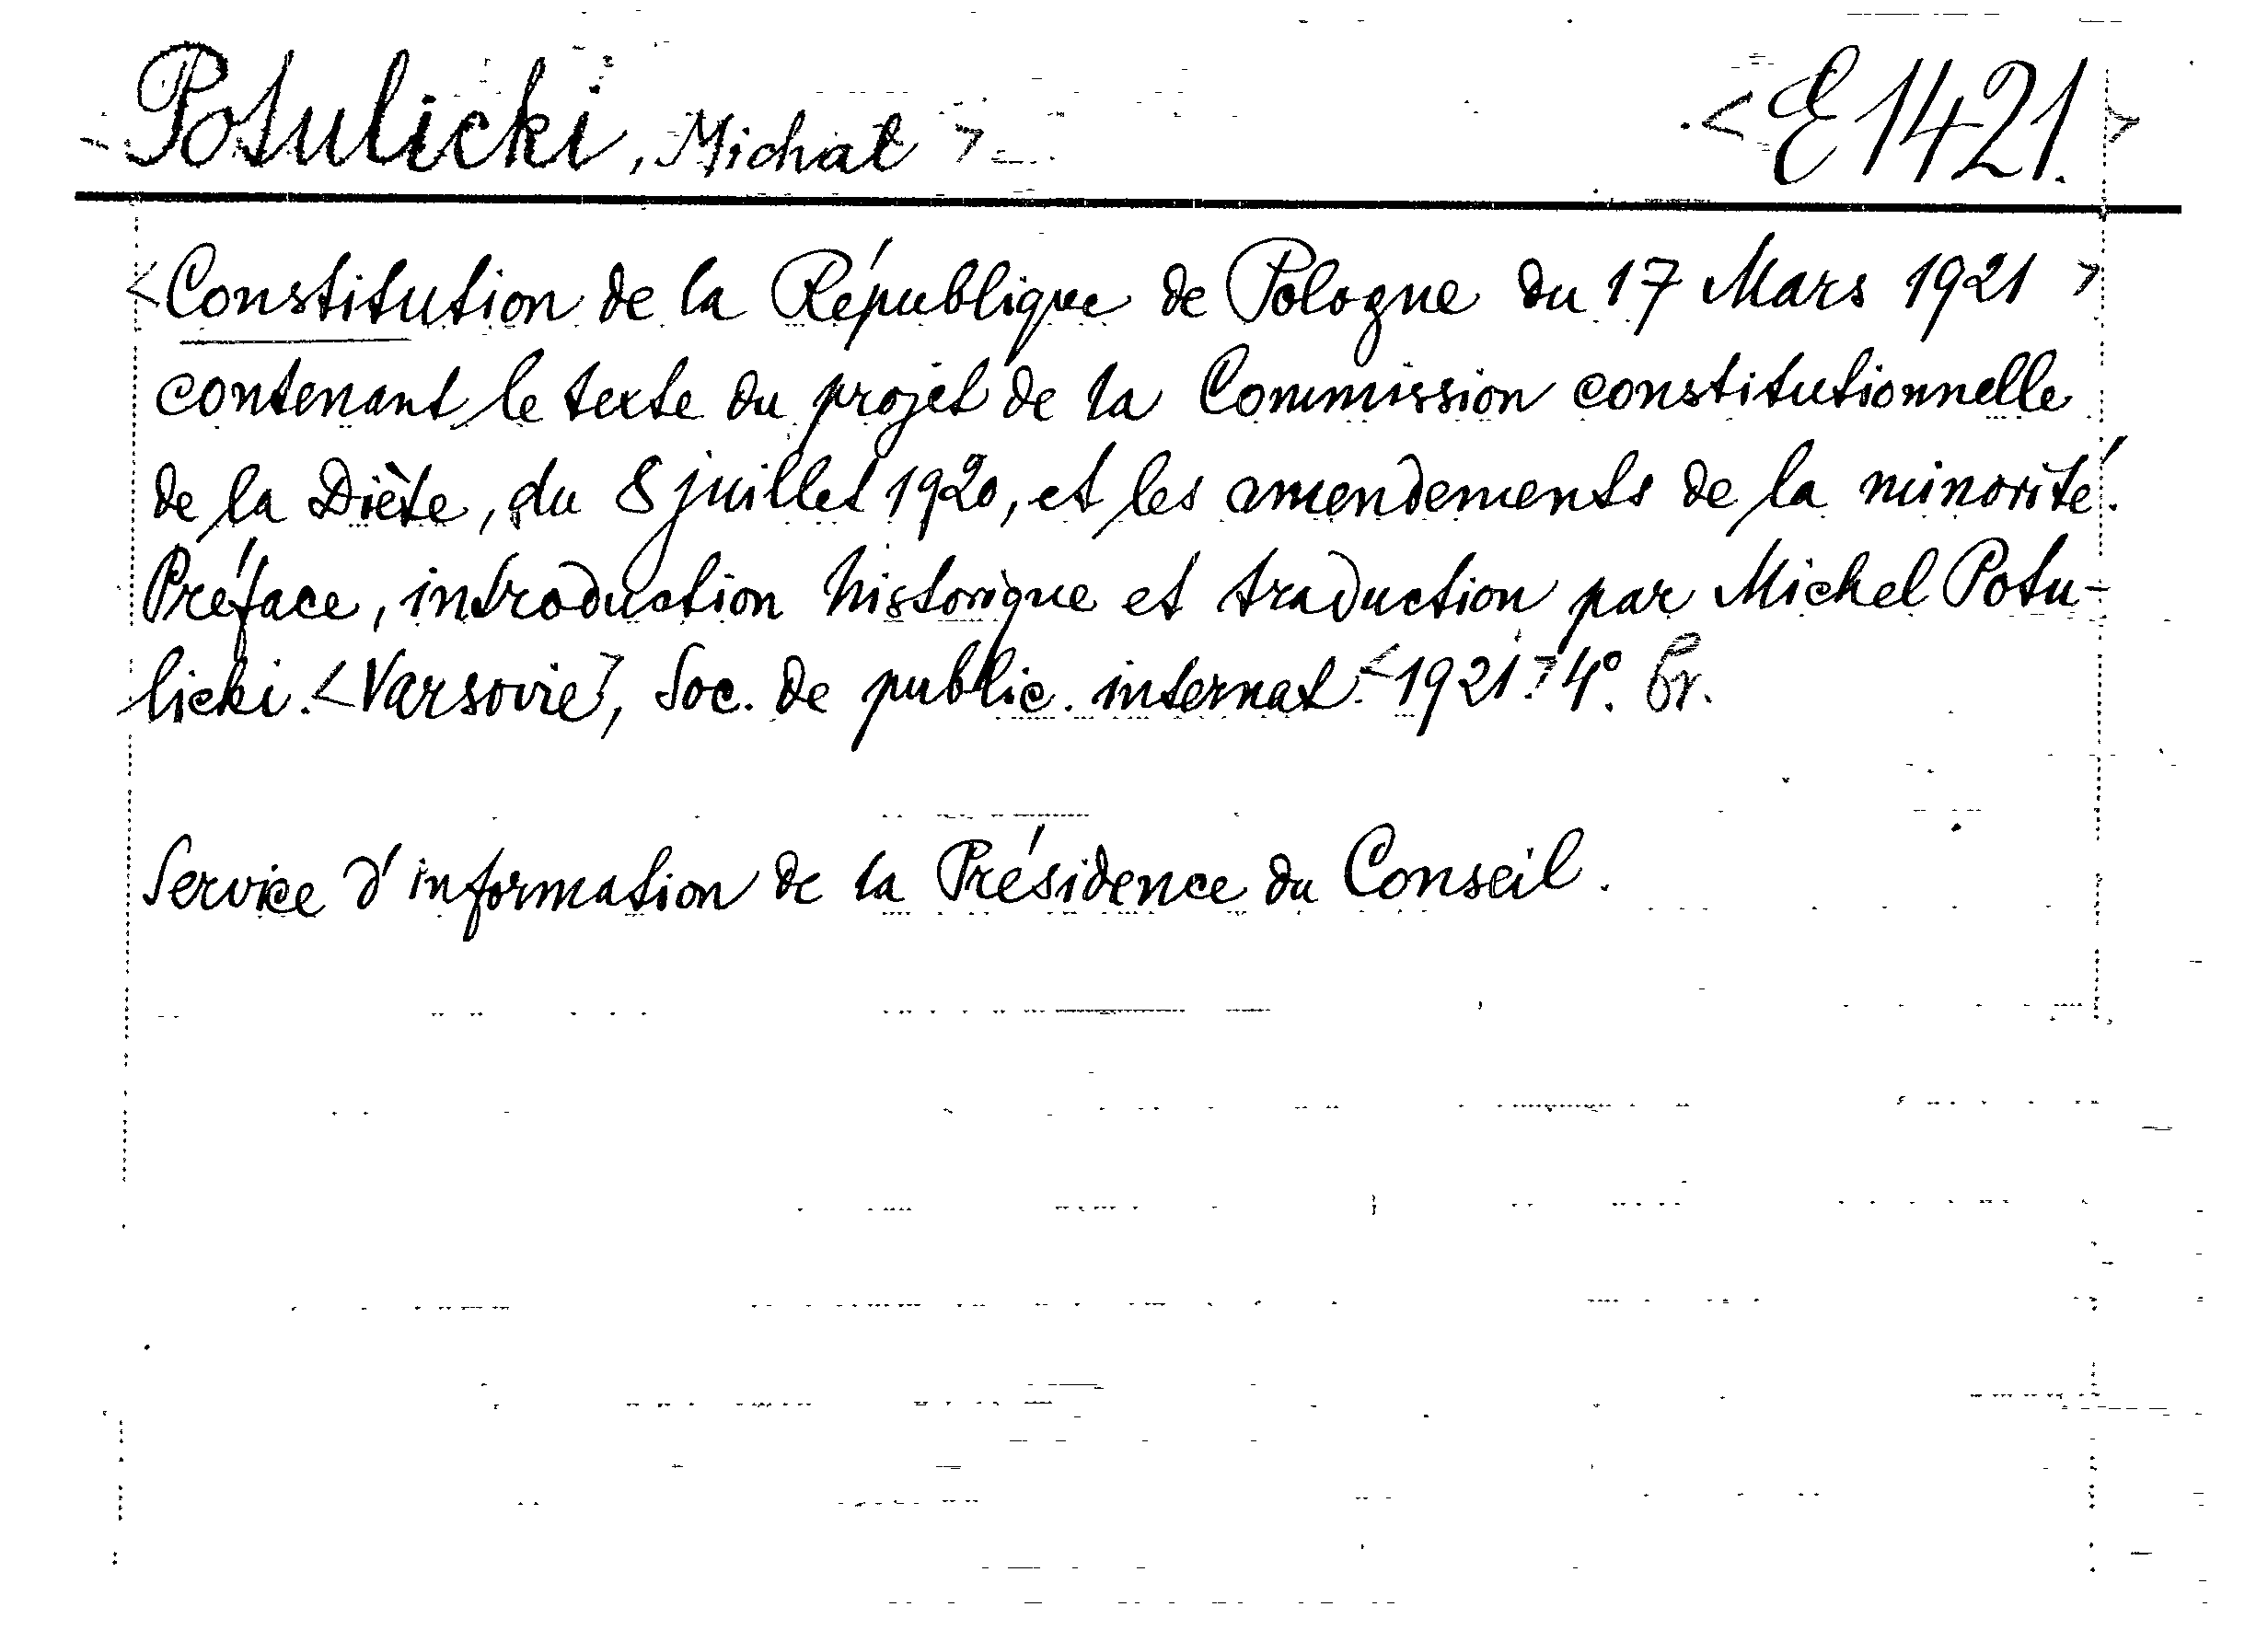 <Potulicki, Michał> <E 1421.>
<Constitution de la République de Pologne du 17 Mars 1921>
contenant le texte du projet de la Commission constitutionnelle
de la Diète, du 8 juillet 1920, et les amendements de la minorité.
Préface, introduction historique et traduction par Michel Potu-
licki. <Varsovie>, Soc. de public. internat. <1921.> 4°. br.
Service d'information de la Présidence du Conseil.